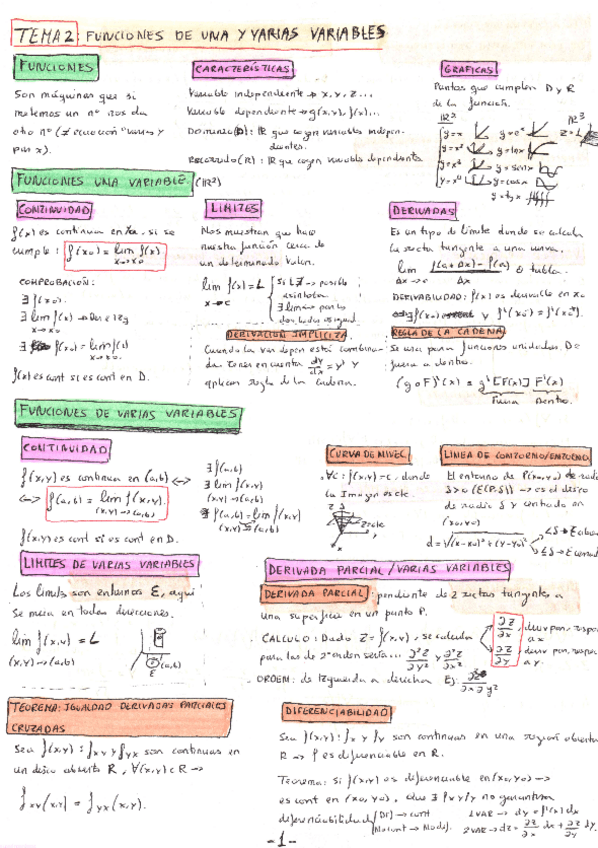 TEMA 2: FUNCIONES DE UNA Y VARIAS VARIABLES
FUNCIONES
Son máquinas que si
metemos un nº nos da
otro nº (≠ ecuación
por x).
CARACTERÍSTICAS
Variable independiente → x, y, z...
Variable dependiente → g(x,y), f(x)...
Dominio (D): ℝ que cogen variables indepen-
dientes.
Recorrido (R): ℝ que cogen variables dependientes
GRAFICAS
Puntos que cumplen D y R
de la función.
ℝ² ℝ³
y=x y=eˣ
y=x² y=lnx
y=x³ y=senx
y=cosx
y=tgx
FUNCIONES UNA VARIABLE. (ℝ²)
CONTINUIDAD
f(x) es continua en x₀, si se
cumple: f(x₀) = lim f(x)
x→x₀
COMPROBACIÓN:
∃ f(x₀).
∃ lim f(x) → Der e Izq
x→x₀
∃ f(x₀) = lim f(x)
x→x₀.
f(x) es cont si es cont en D.
LIMITES
Nos muestran que hace
nuestra función cerca de
un determinado valor.
lim f(x) = L
x→c
Si L∄ → posible
asíntota.
∃ lim si por los
dos lados es igual.
DERIVADAS
Es un tipo de límite donde se calcula
la recta tangente a una curva.
lim f(a+Δx) - f(a) o tabla.
Δx→0 Δx
DERIVABILIDAD: f(x) es derivable en x₀
DERIVACION IMPLICITA
Cuando la var depen está combina-
da. Tener en cuenta dy/dx = y' y
aplicar regla de la cadena.
REGLA DE LA CADENA
Se usa para funciones unidas. De
fuera a dentro.
(g o F)'(x) = g'[F(x)] F'(x)
Fuera Dentro.
FUNCIONES DE VARIAS VARIABLES
CONTINUIDAD
f(x,y) es continua en (a,b) <->
<-> f(a,b) = lim f(x,y).
(x,y)→(a,b)
∃ f(a,b)
∃ lim f(x,y)
(x,y)→(a,b)
∃ f(a,b) = lim f(x,y)
(x,y)→(a,b)
f(x,y) es cont si es cont en D.
CURVA DE NIVEL
∀c: f(x,y) = c, donde
la Imagen es cte.
LINEA DE CONTORNO/ENTORNO
El entorno de P(x₀,y₀) de radio
δ>0 (E(P,δ)) → es el disco
de radio δ y centrado en
(x₀,y₀)
d=√(x-x₀)²+(y-y₀)²
LIMITES DE VARIAS VARIABLES
Los límites son entornos ε, aquí
se mira en todas direcciones.
lim f(x,y) = L
(x,y)→(a,b)
ε (a,b)
DERIVADA PARCIAL/VARIAS VARIABLES
DERIVADA PARCIAL: pendiente de 2 rectas tangentes a
una superficie en un punto P.
CALCULO: Dado Z=f(x,y), se calcula ∂Z/∂x, deriv parc, respec
a x
para las de 2º orden sería... ∂²Z/∂y² y ∂²Z/∂x² ∂Z/∂y deriv parc, respec
a y.
ORDEN: de Izquierda a derecha
TEOREMA: IGUALDAD DERIVADAS PARCIALES
CRUZADAS
Sea f(x,y): fxy y fyx son continuas en
un disco abierto R, ∀(x,y) ∈ R →
fxy(x,y) = fyx(x,y).
DIFERENCIABILIDAD
Sea f(x,y): fx y fy son continuas en una región abierta
R → f es diferenciable en R.
Teorema: Si f(x,y) es diferenciable en (x₀,y₀) →
es cont en (x₀,y₀), Que ∃ fx y fy no garantiza
diferenciabilidad
Dif → cont
No cont → No dif.
1VAR → dy = f'(x) dx
2VAR → dz = ∂z/∂x dx + ∂z/∂y dy.
-1-